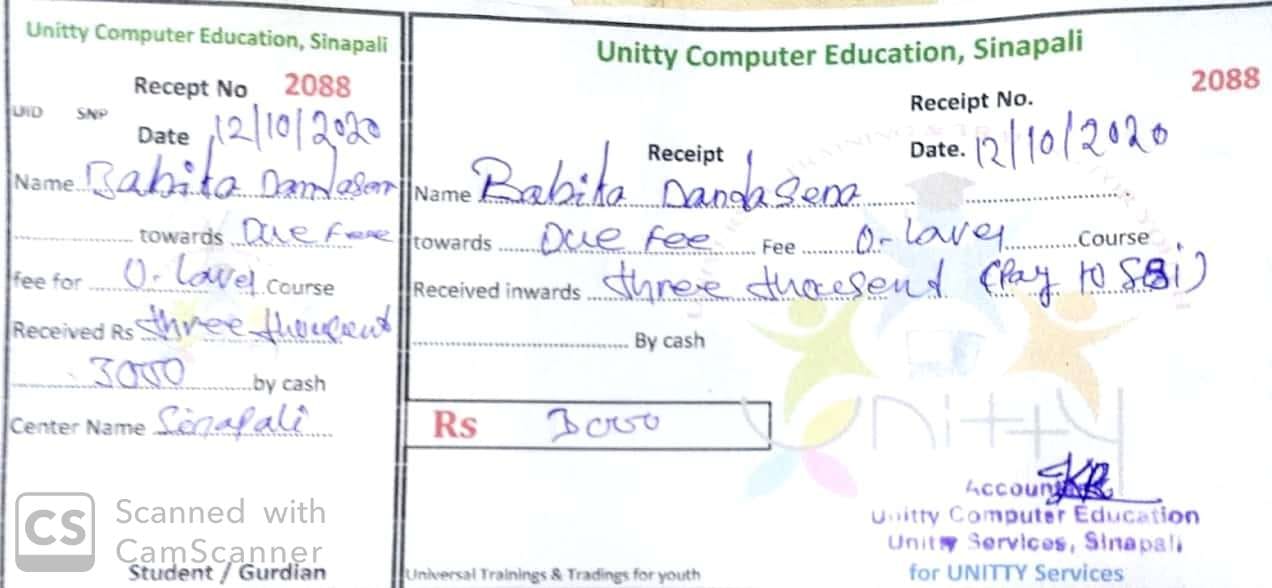 Unitty Computer Education, Sinapali
Recept No 2088
UID SNP
Date 12/10/2020
Name Babita Dandasena
towards Due Fee
fee for O-Lavel Course
Received Rs three thousent
3000 by cash
Center Name Sinapali
Student / Gurdian
Unitty Computer Education, Sinapali
2088
Receipt No.
Receipt
Date. 12/10/2020
Name Babita Dandasena
towards Due Fee Fee O-Lavel Course
Received inwards three thousend (Pay to SBI)
By cash
Rs 3000
UNITTY
Accountant
Unitty Computer Education
Unitty Services, Sinapali
for UNITTY Services
Universal Trainings & Tradings for youth
CS Scanned with
CamScanner